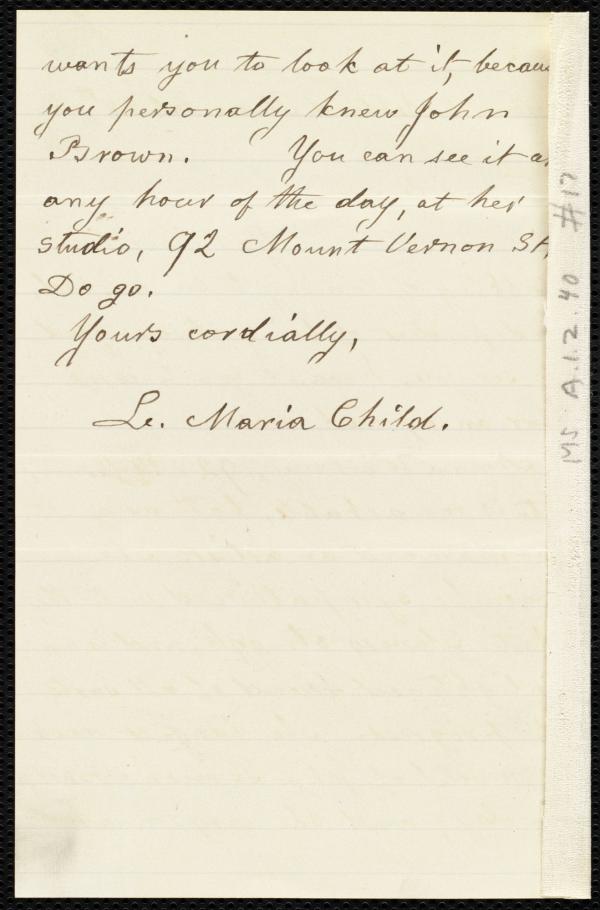 wants you to look at it, becau
you personally knew John
Brown. You can see it a
any hour of the day, at her
studio, 92 Mount Vernon St,
Do go.
Yours cordially,
L. Maria Child.
MS A.1.2.40 #17